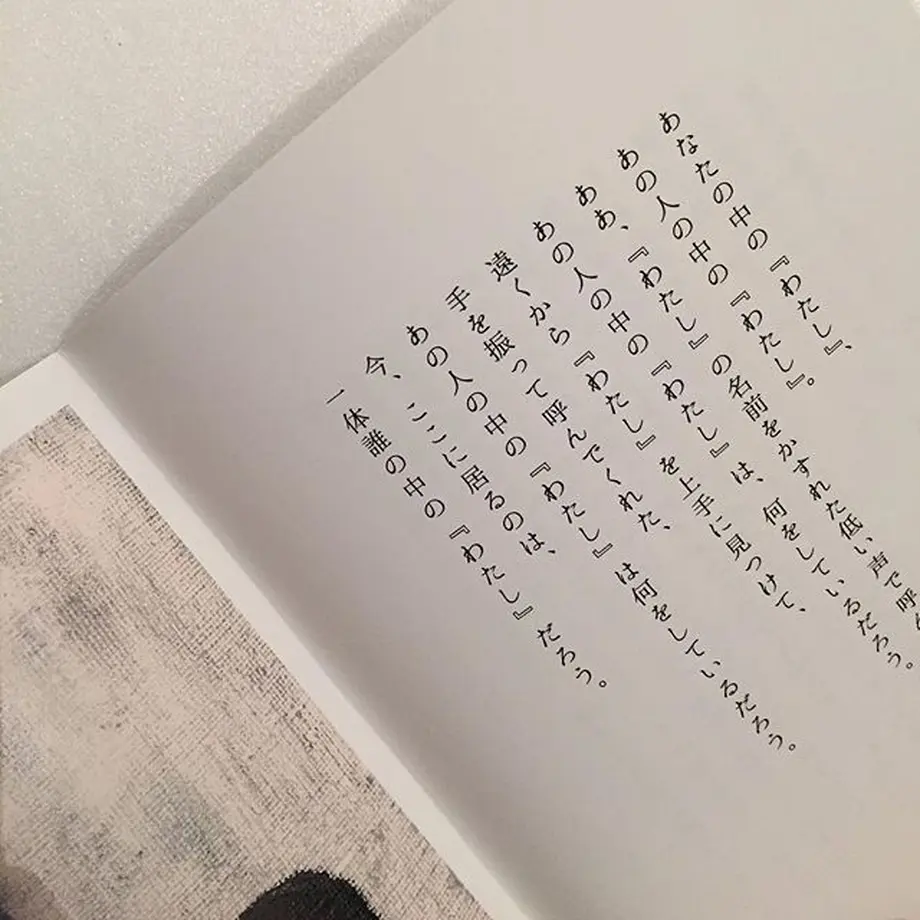 あなたの中の『わたし』、
あの人の中の『わたし』。
ああ、『わたし』の名前をかすれた低い声で呼
あの人の中の『わたし』は、何をしているだろう。
遠くから『わたし』を上手に見つけて、
手を振って呼んでくれた、
あの人の中の『わたし』は何をしているだろう。
今、ここに居るのは、
一体誰の中の『わたし』だろう。